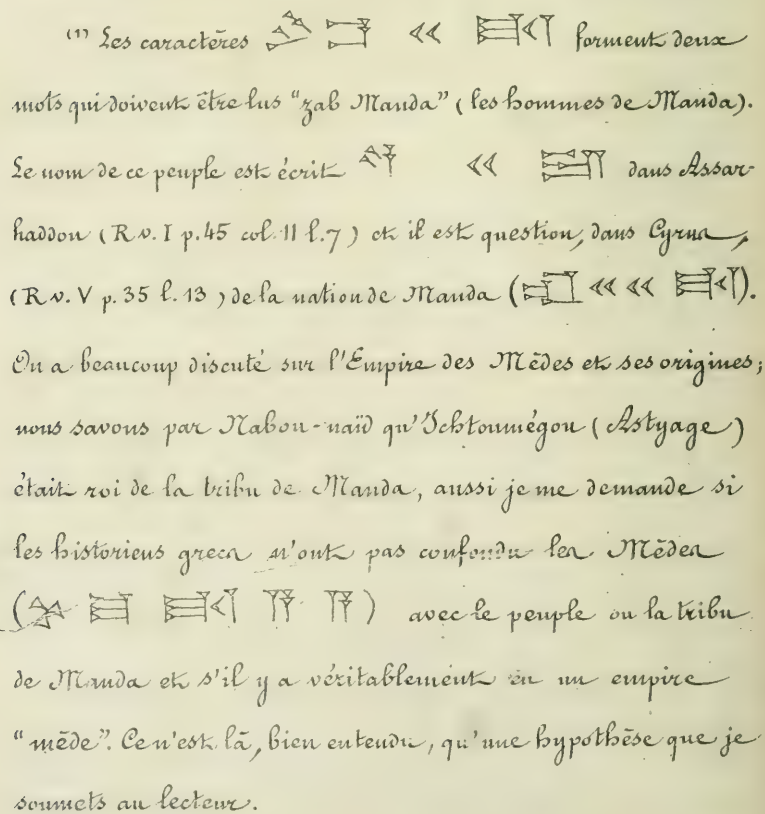 (1) Les caractères forment deux
mots qui doivent être lus "zab Manda" (les hommes de Manda).
Le nom de ce peuple est écrit dans Assar-
haddon (R.w. I p. 45 col. II l. 7) et il est question, dans Cyrus,
(R.w. V p. 35 l. 13) de la nation de Manda ( ).
On a beaucoup discuté sur l'Empire des Mèdes et ses origines;
nous savons par Nabou-naïd qu'Ichtoumégou (Astyage)
était roi de la tribu de Manda, aussi je me demande si
les historiens grecs n'ont pas confondu les Mèdes
( ) avec le peuple ou la tribu
de Manda et s'il y a véritablement eu un empire
"mède". Ce n'est là, bien entendu, qu'une hypothèse que je
soumets au lecteur.